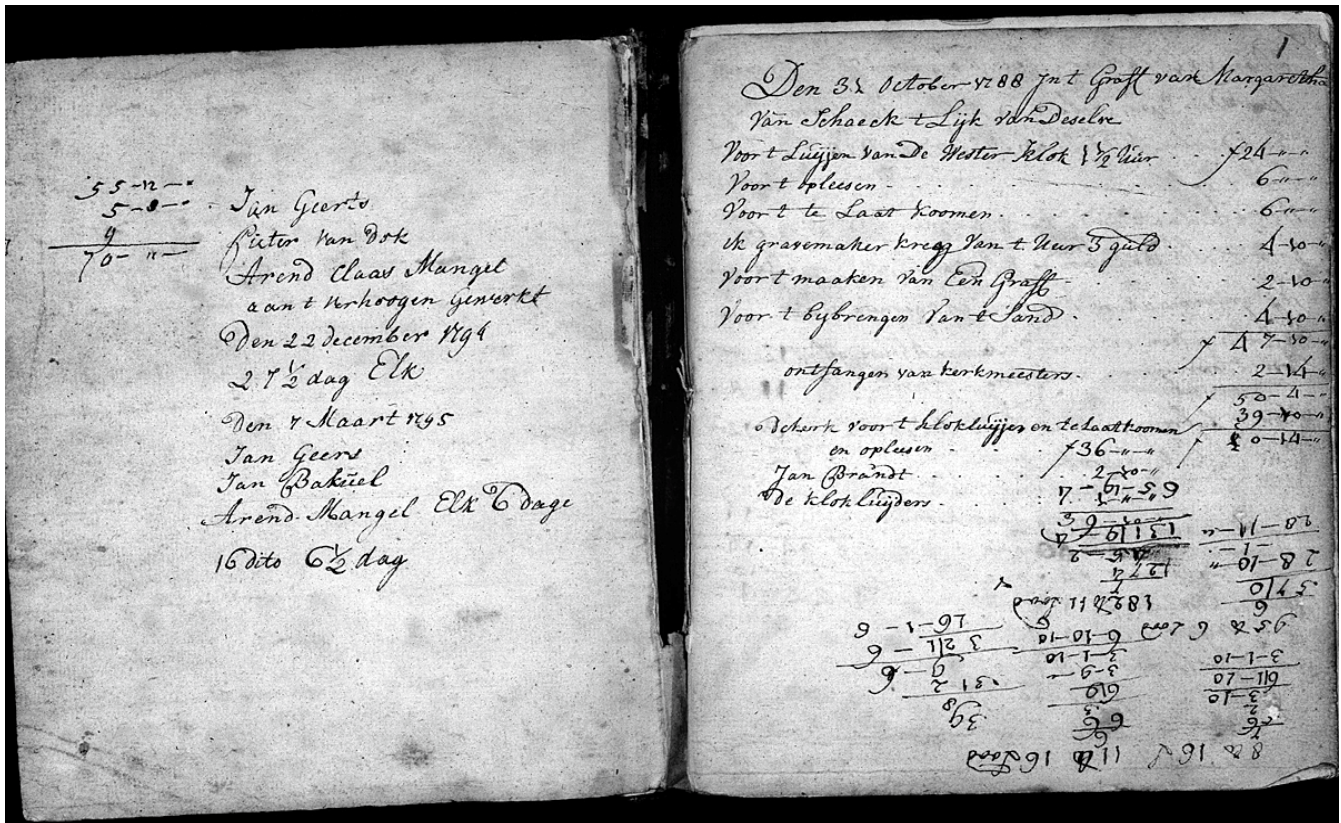 55-12-"
5-8-"
9
70-"-
Jan Geerts
Pieter van Dok
Arend Claas Mangel
aan t verhoogen Gewerkt
Den 22 december 1794
27 1/2 dag Elk
Den 7 Maart 1795
Jan Geers
Jan Bakuel
Arend Mangel Elk 6 dage
16 dito 6 1/2 dag
1
Den 31 October 1788 Jn t Graff van Margaretha
van Schaeck t Lijk van Deselve
Voor t Luijjen van De Wester Klok 1 1/2 Uur f 24-"-"
Voor t opleesen 6-"-"
Voor t te Laat koomen 6-"-"
ik gravemaker kreeg van t Uur 3 guld 4-10-"
Voor t maaken van Een Graff 2-10-"
Voor t bybrengen van t Sand 4-10-"
f 47-10-"
ontfangen van kerkmeesters 2-14-"
50-4-"
dekerk voor t klokluyjen en te Laat koomen 39-10-"
en opleesen f 36-"-" 10-14-"
Jan Brandt 2-10-"
De klokluijders
65-19-4
1319-4
1274
182 11 Lood
28-10-"
3710
6
95 6 Lood
6-10-10
3-1-10
3-9-
619
6
16-1-6
3211-6
9-6
39
3-1-10
611-10
3-10
11 16 Lood